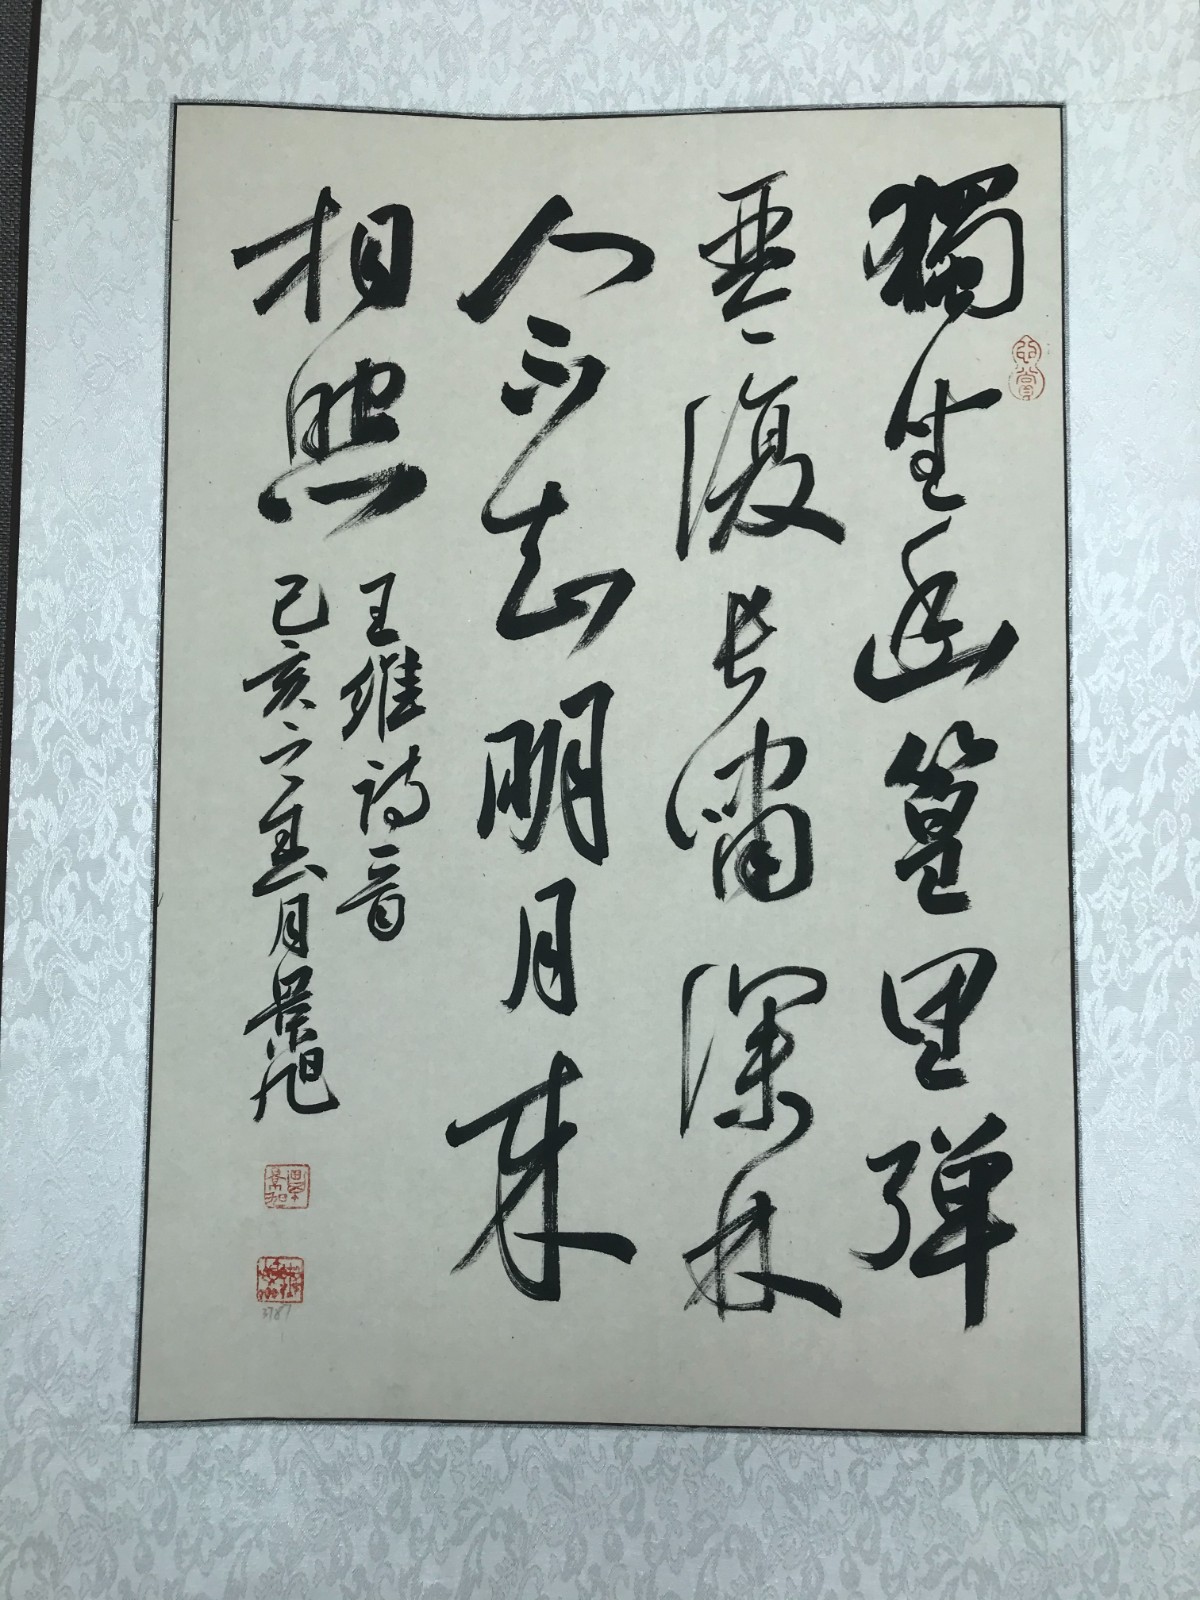 獨坐幽篁里弹
琴復长嘯深林
人不知明月来
相照
王維诗一首
己亥月景旭